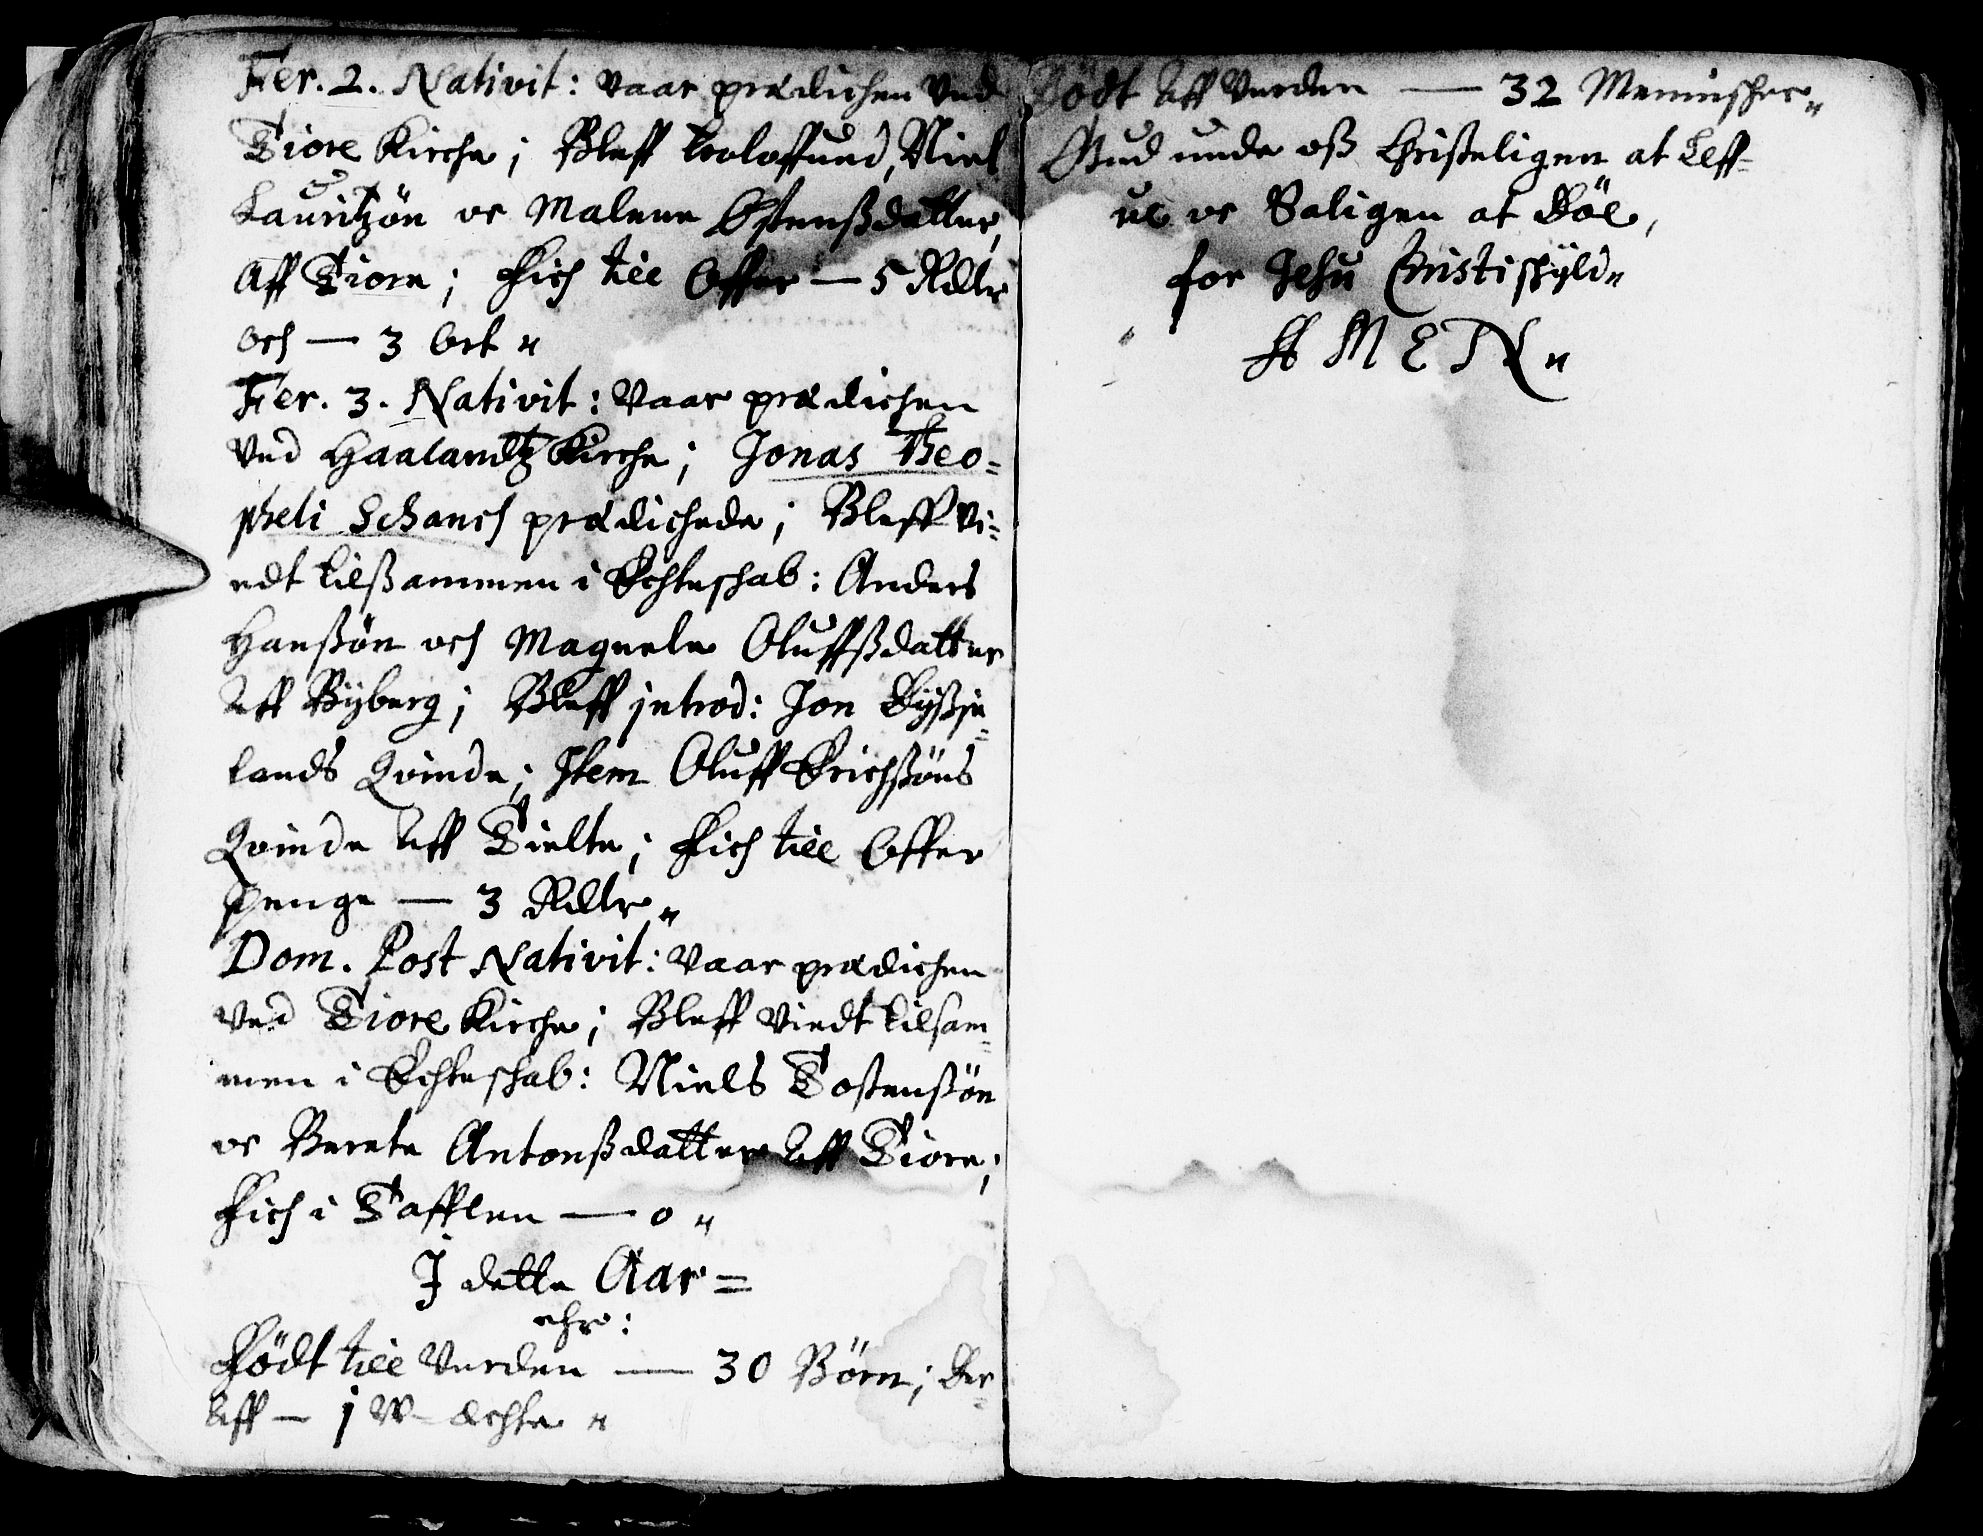 Fer. 2. Nativit: vaar prædichen ved
Tiore Kirche; Bleff troloffued, Niel
Lauritzön oc Malene Ostenßdatter,
Aff Tiore; Fich till Offer — 5 Rdlr
och — 3 Ort "
Fer. 3. Nativit: Vaar prædichen
ved Haalandtz Kirche; Jonas Theo=
pheli Schanch prædichede; Bleff vi=
edt tilßammen i Echteschab: Anders
Hanßön och Magnele Oluffßdatter
Aff Byberg; Bleff introd: Jon
lands Qvinde; Item Oluff Erichßöns
Qvinde Aff Tielte; Fich till Offer
penge — 3 Rdlr "
Dom. Post Nativit: vaar prædichen
ved Tiore Kirche; Bleff viedt tilsam=
men i Echteschab: Niels Tostenßön
oc Berete Antonßdatter Aff Tiore;
Fich i Tafflen — 0 "
J dette Aar =
ehr:
Födt till Verden — 30 Börn; Der=
Aff — j W-æchte "
Dödt Aff Verden — 32 Mennischer "
Gud unde oß Christeligen at Leff=
ue oc Saligen at Döe,
for Jesu Christi schyld "
AMEN "